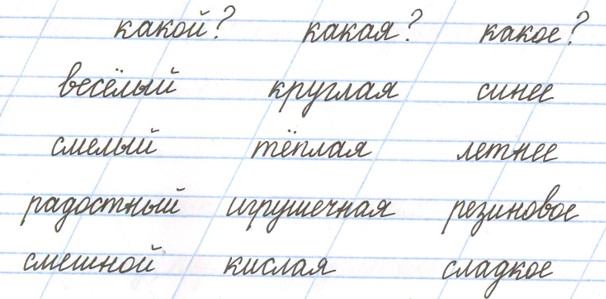 какой? какая? какое?
весёлый круглая синее
смелый тёплая летнее
радостный игрушечная резиновое
смешной кислая сладкое